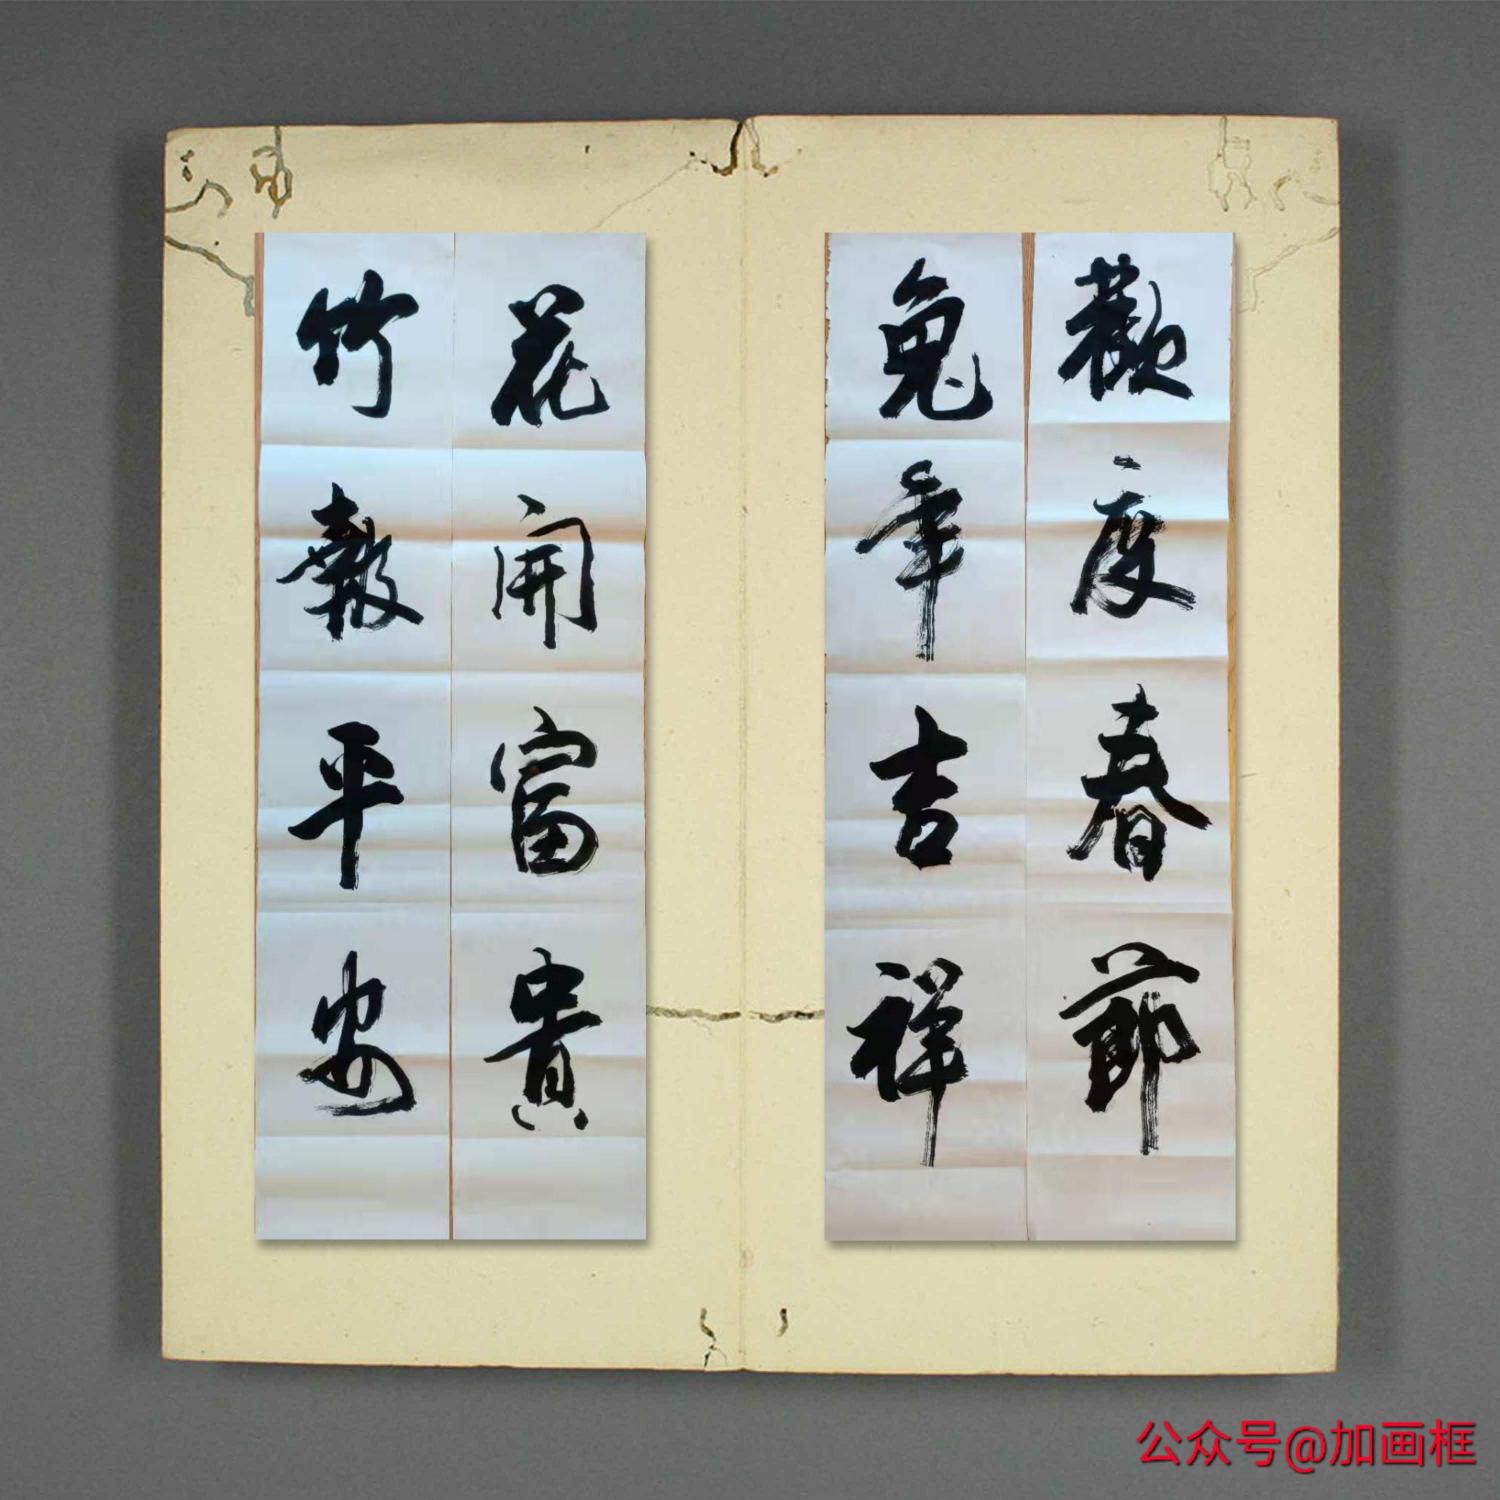 歡度春節
兔年吉祥
花開富貴
竹報平安
公众号@加画框